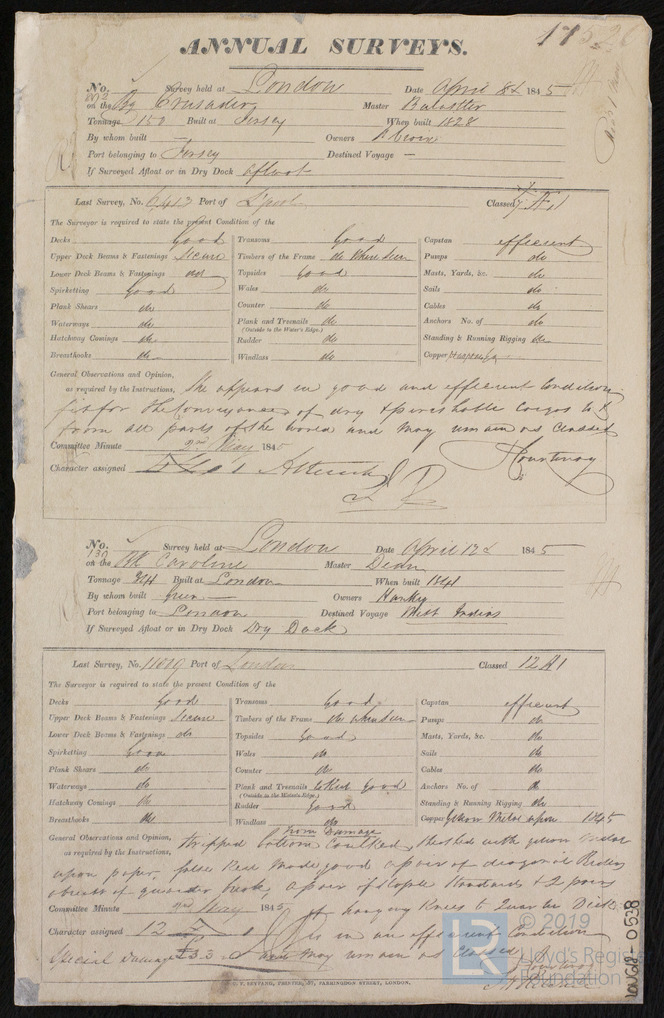 ANNUAL SURVEYS.
No. Survey held at London Date April 8th 1845
on the Bg Crusader Master Balsotter
Tonnage 150 Built at Jersey When built 1828
By whom built — Owners
Port belonging to Jersey Destined Voyage —
If Surveyed Afloat or in Dry Dock afloat
Last Survey, No. Port of Classed
The Surveyor is required to state the present Condition of the
Decks Good Transoms Good Capstan efficient
Upper Deck Beams & Fastenings Secure Timbers of the Frame do where seen Pumps do
Lower Deck Beams & Fastenings Topsides Good Masts, Yards, &c. do
Spirketting Good Wales do Sails do
Plank Shears do Counter do Cables do
Waterways do Plank and Treenails do Anchors No. of do
(Outside to the Water's Edge.)
Hatchway Comings do Rudder do Standing & Running Rigging do
Breasthooks do Windlass do Copper
General Observations and Opinion,
as required by the Instructions, She appears in good and efficient Condition
fit for the Conveyance of dry & perishable Cargos to &
from all parts of the world and may remain as Classed
Committee Minute 2nd May 1845
Character assigned
Courtenay
No. 130 Survey held at London Date April 12th 1845
on the Bk Caroline Master Dean
Tonnage Built at London When built 1841
By whom built Green Owners Hankey
Port belonging to London Destined Voyage West Indies
If Surveyed Afloat or in Dry Dock Dry Dock
Last Survey, No. Port of London Classed 12 A 1
The Surveyor is required to state the present Condition of the
Decks Good Transoms Good Capstan efficient
Upper Deck Beams & Fastenings Secure Timbers of the Frame do where seen Pumps do
Lower Deck Beams & Fastenings do Topsides Good Masts, Yards, &c. do
Spirketting Good Wales do Sails do
Plank Shears do Counter do Cables do
Waterways do Plank and Treenails to Keel Good Anchors No. of do
(Outside to the Water's Edge.)
Hatchway Comings do Rudder Good Standing & Running Rigging do
Breasthooks do Windlass do Copper Yellow Metal upon 1845
from Damage
General Observations and Opinion, Stripped bottom Caulked, Sheathed with yellow metal
as required by the Instructions,
upon paper, false Keel made good a pair of diagonal Riders
abreast of quarter hooks, a pair of Staple Standards & 2 pairs
Committee Minute 2nd May 1845 of hanging Knees to Quarter Deck
Character assigned 12 is in an efficient Condition
Special Damage and may remain as Classed
PRINTER, 57, FARRINGDON STREET, LONDON.
© 2019
Lloyd's Register
Foundation
LON618-0528